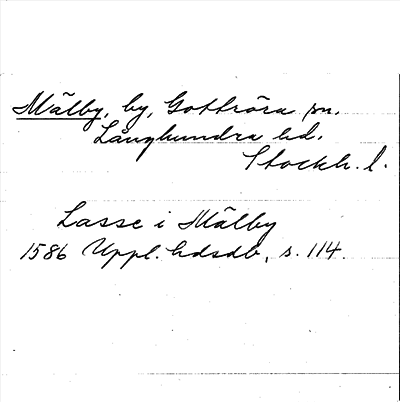 Mälby, by, Gottröra sn.
Långhundra hd.
Stockh. l.
Lasse i Mälby
1586 Uppl. hdsdb, s. 114.